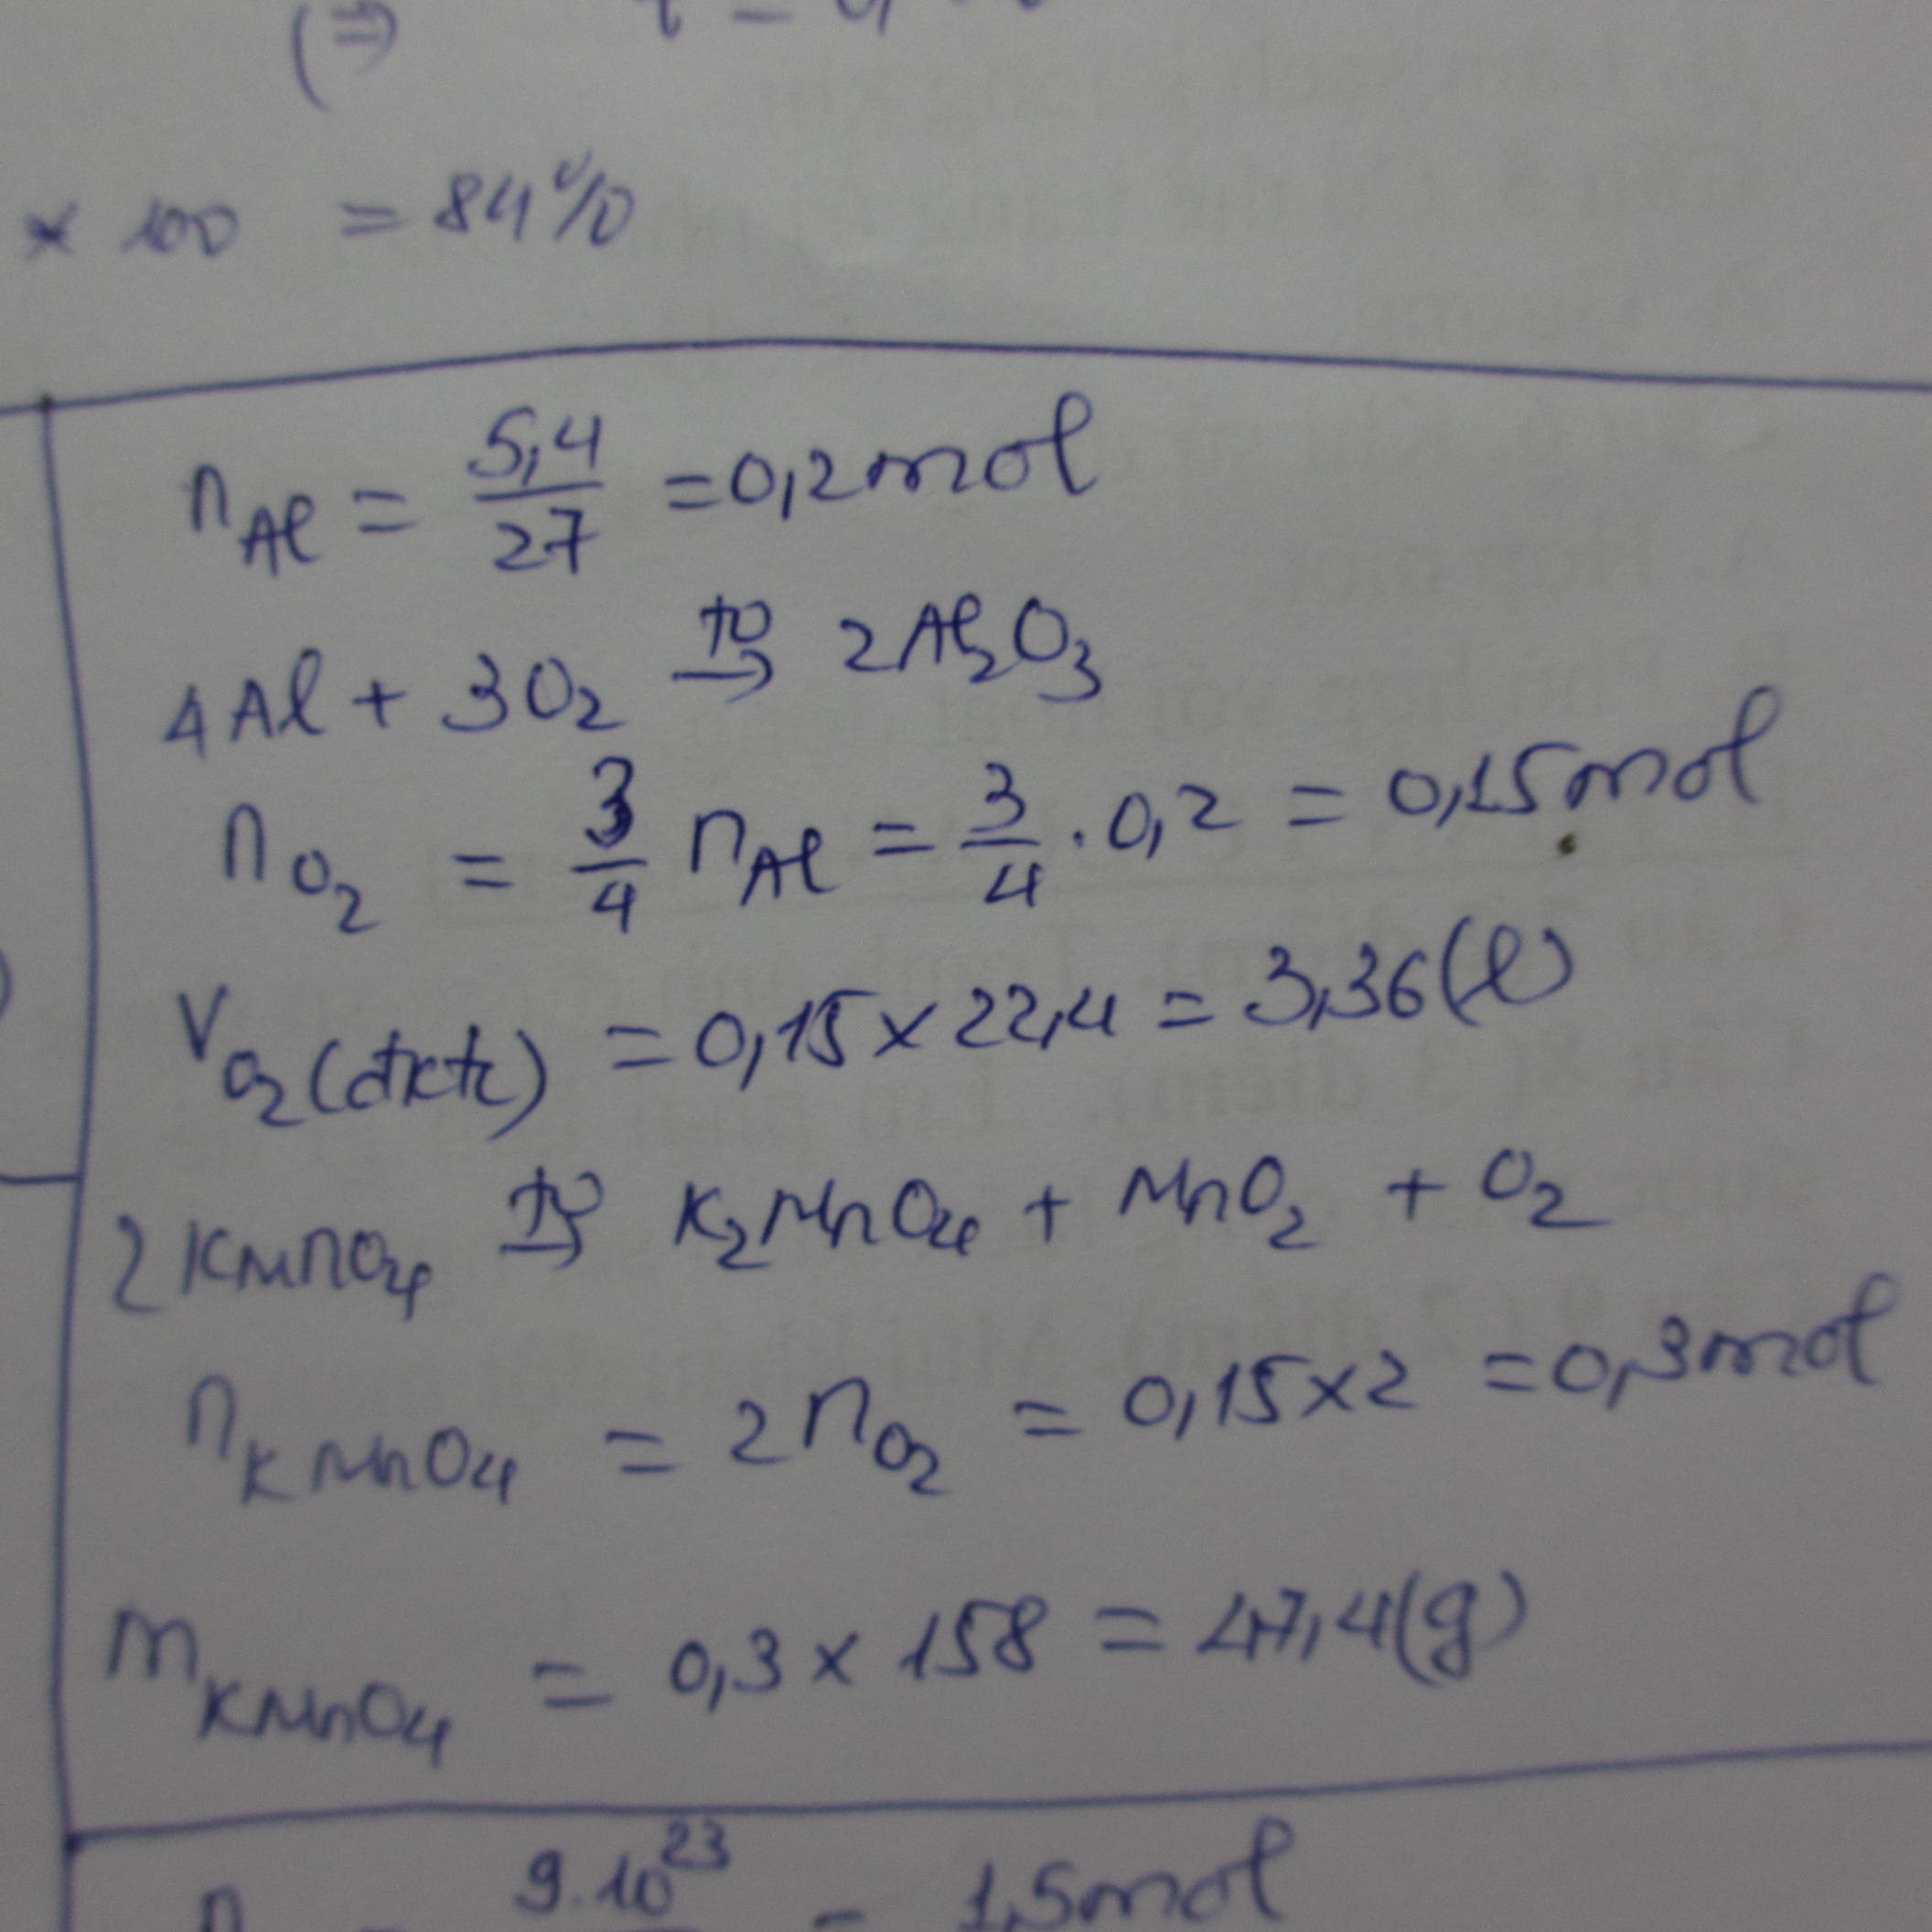 (⇒)
× 100 = 84%
n_Al = 5,4/27 = 0,2mol
4Al + 3O₂ →(t⁰) 2Al₂O₃
n_O₂ = 3/4 n_Al = 3/4 . 0,2 = 0,15mol
V_O₂(đktc) = 0,15 × 22,4 = 3,36(l)
2KMnO₄ →(t⁰) K₂MnO₄ + MnO₂ + O₂
n_KMnO₄ = 2n_O₂ = 0,15×2 = 0,3mol
m_KMnO₄ = 0,3 × 158 = 47,4(g)
n = 9.10²³ = 1,5mol